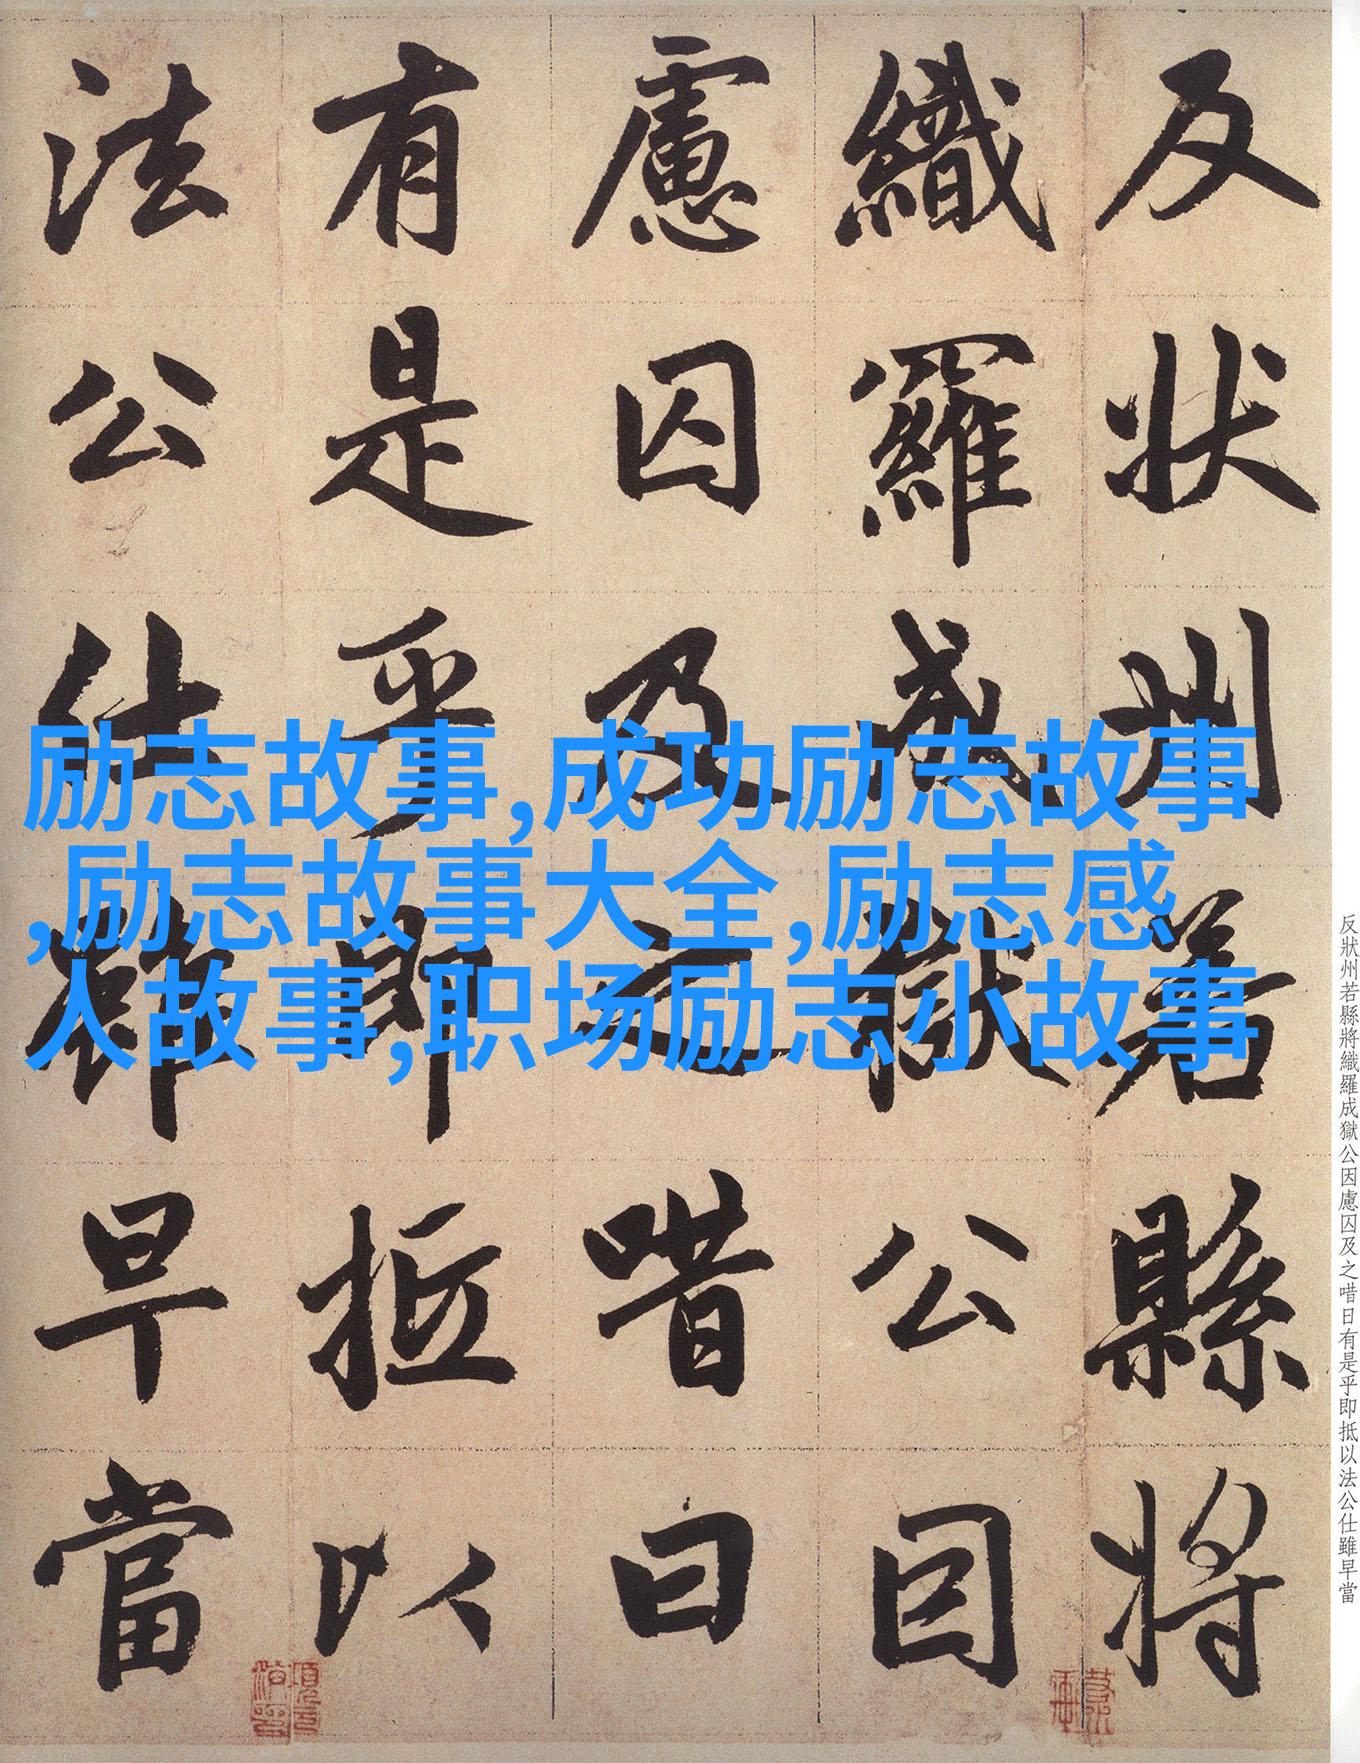 反状州若縣將
織羅成獄公因
慮囚及之唶曰
有是乎即抵以
法公仕雖早當
励志故事,成功励志故事
,励志故事大全,励志感
人故事,职场励志小故事
反狀州若縣將織羅成獄公因慮囚及之唶日有是乎即抵以法公仕雖早當